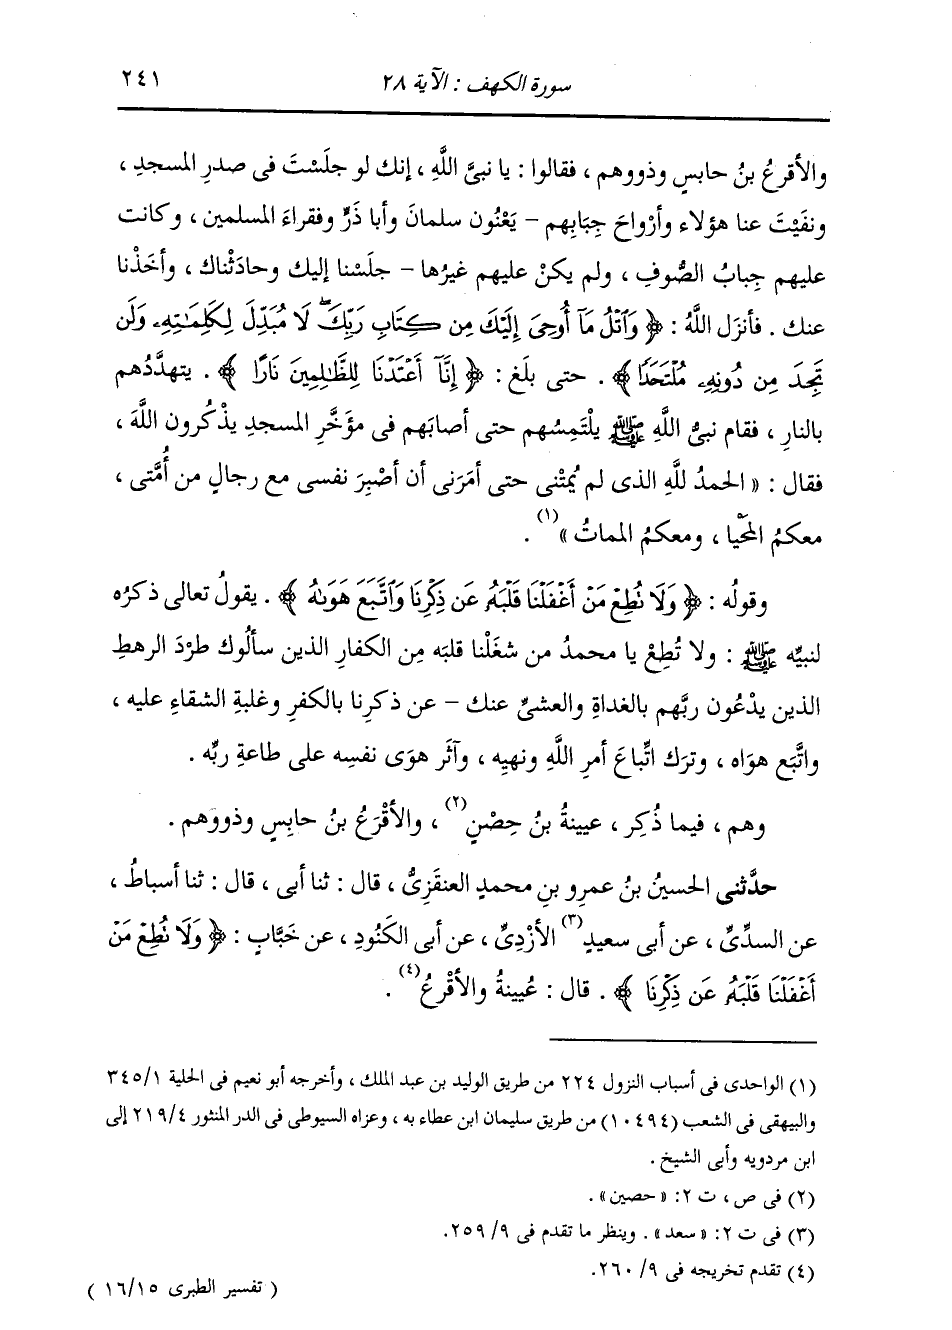 سورة الكهف : الآية ٢٨ ٢٤١
والأقرعُ بنُ حابسٍ وذووهم ، فقالوا : يا نبىَّ اللَّهِ ، إنك لو جلَسْتَ فى صدرِ المسجدِ ،
ونفَيْتَ عنا هؤلاء وأرْواحَ جِبَابِهم – يَعْنُون سلمانَ وأبا ذَرٍّ وفقراءَ المسلمين ، وكانت
عليهم جِبابُ الصُّوفِ ، ولم يكنْ عليهم غيرُها – جلَسْنا إليك وحادَثْناك ، وأخَذْنا
عنك . فأنزَل اللَّهُ : ﴿ وَٱتۡلُ مَآ أُوحِىَ إِلَيۡكَ مِن كِتَابِ رَبِّكَۖ لَا مُبَدِّلَ لِكَلِمَـٰتِهِۦ وَلَن
تَجِدَ مِن دُونِهِۦ مُلۡتَحَدًا ﴾ . حتى بلَغ : ﴿ إِنَّآ أَعۡتَدۡنَا لِلظَّـٰلِمِينَ نَارًا ﴾ . يتهدَّدُهم
بالنارِ ، فقام نبىُّ اللَّهِ ﷺ يلْتَمِسُهم حتى أصابَهم فى مؤَخَّرِ المسجدِ يذْكُرون اللَّهَ ،
فقال : « الحمدُ للَّهِ الذى لم يُمِتْنى حتى أمَرَنى أن أصْبِرَ نفسى مع رجالٍ من أُمَّتى ،
معكمُ المَحْيا ، ومعكمُ المماتُ »(١) .
وقولُه : ﴿ وَلَا تُطِعۡ مَنۡ أَغۡفَلۡنَا قَلۡبَهُۥ عَن ذِكۡرِنَا وَٱتَّبَعَ هَوَىٰهُ ﴾ . يقولُ تعالى ذكرُه
لنبيِّه ﷺ : ولا تُطِعْ يا محمدُ من شغَلْنا قلبَه مِن الكفارِ الذين سأَلُوك طرْدَ الرهطِ
الذين يدْعُون ربَّهم بالغداةِ والعشىِّ عنك – عن ذكرِنا بالكفرِ وغلبةِ الشقاءِ عليه ،
واتَّبَع هوَاه ، وترَك اتِّباعَ أمرِ اللَّهِ ونهيِه ، وآثَر هوَى نفسِه على طاعةِ ربِّه .
وهم ، فيما ذُكِر ، عيينةُ بنُ حِصْنٍ(٢) ، والأقْرَعُ بنُ حابِسٍ وذووهم .
حدَّثنى الحسينُ بنُ عمرِو بنِ محمدٍ العنقَزِىُّ ، قال : ثنا أبى ، قال : ثنا أسباطُ ،
عن السدِّىِّ ، عن أبى سعيدٍ(٣) الأزْدِىِّ ، عن أبى الكَنُودِ ، عن خَبَّابٍ : ﴿ وَلَا تُطِعۡ مَنۡ
أَغۡفَلۡنَا قَلۡبَهُۥ عَن ذِكۡرِنَا ﴾ . قال : عُيينةُ والأقْرعُ(٤) .
(١) الواحدى فى أسباب النزول ٢٢٤ من طريق الوليد بن عبد الملك ، وأخرجه أبو نعيم فى الحلية ٣٤٥/١
والبيهقى فى الشعب (١٠٤٩٤) من طريق سليمان ابن عطاء به ، وعزاه السيوطى فى الدر المنثور ٢١٩/٤ إلى
ابن مردويه وأبى الشيخ .
(٢) فى ص ، ت ٢: « حصين » .
(٣) فى ت ٢: « سعد » . وينظر ما تقدم فى ٢٥٩/٩.
(٤) تقدم تخريجه فى ٢٦٠/٩.
( تفسير الطبرى ١٦/١٥ )